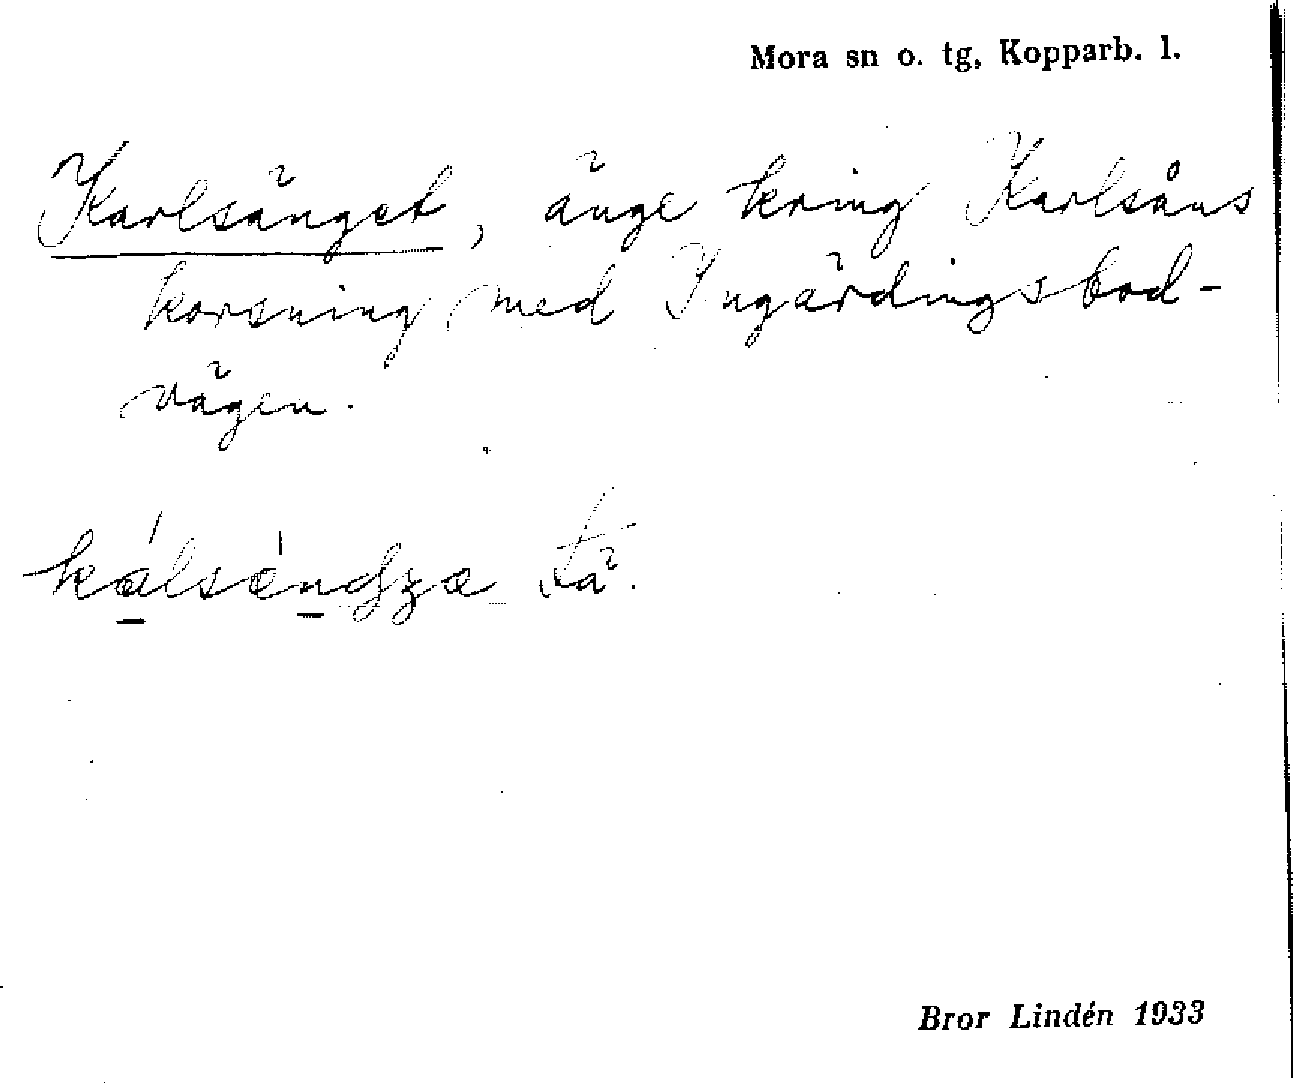 Mora sn o. tg, Kopparb. l.
Karlsänget, änge kring Karlsåns
korsning med Ingärdingsbod-
vägen.
kálsèndzæ
Bror Lindén 1933